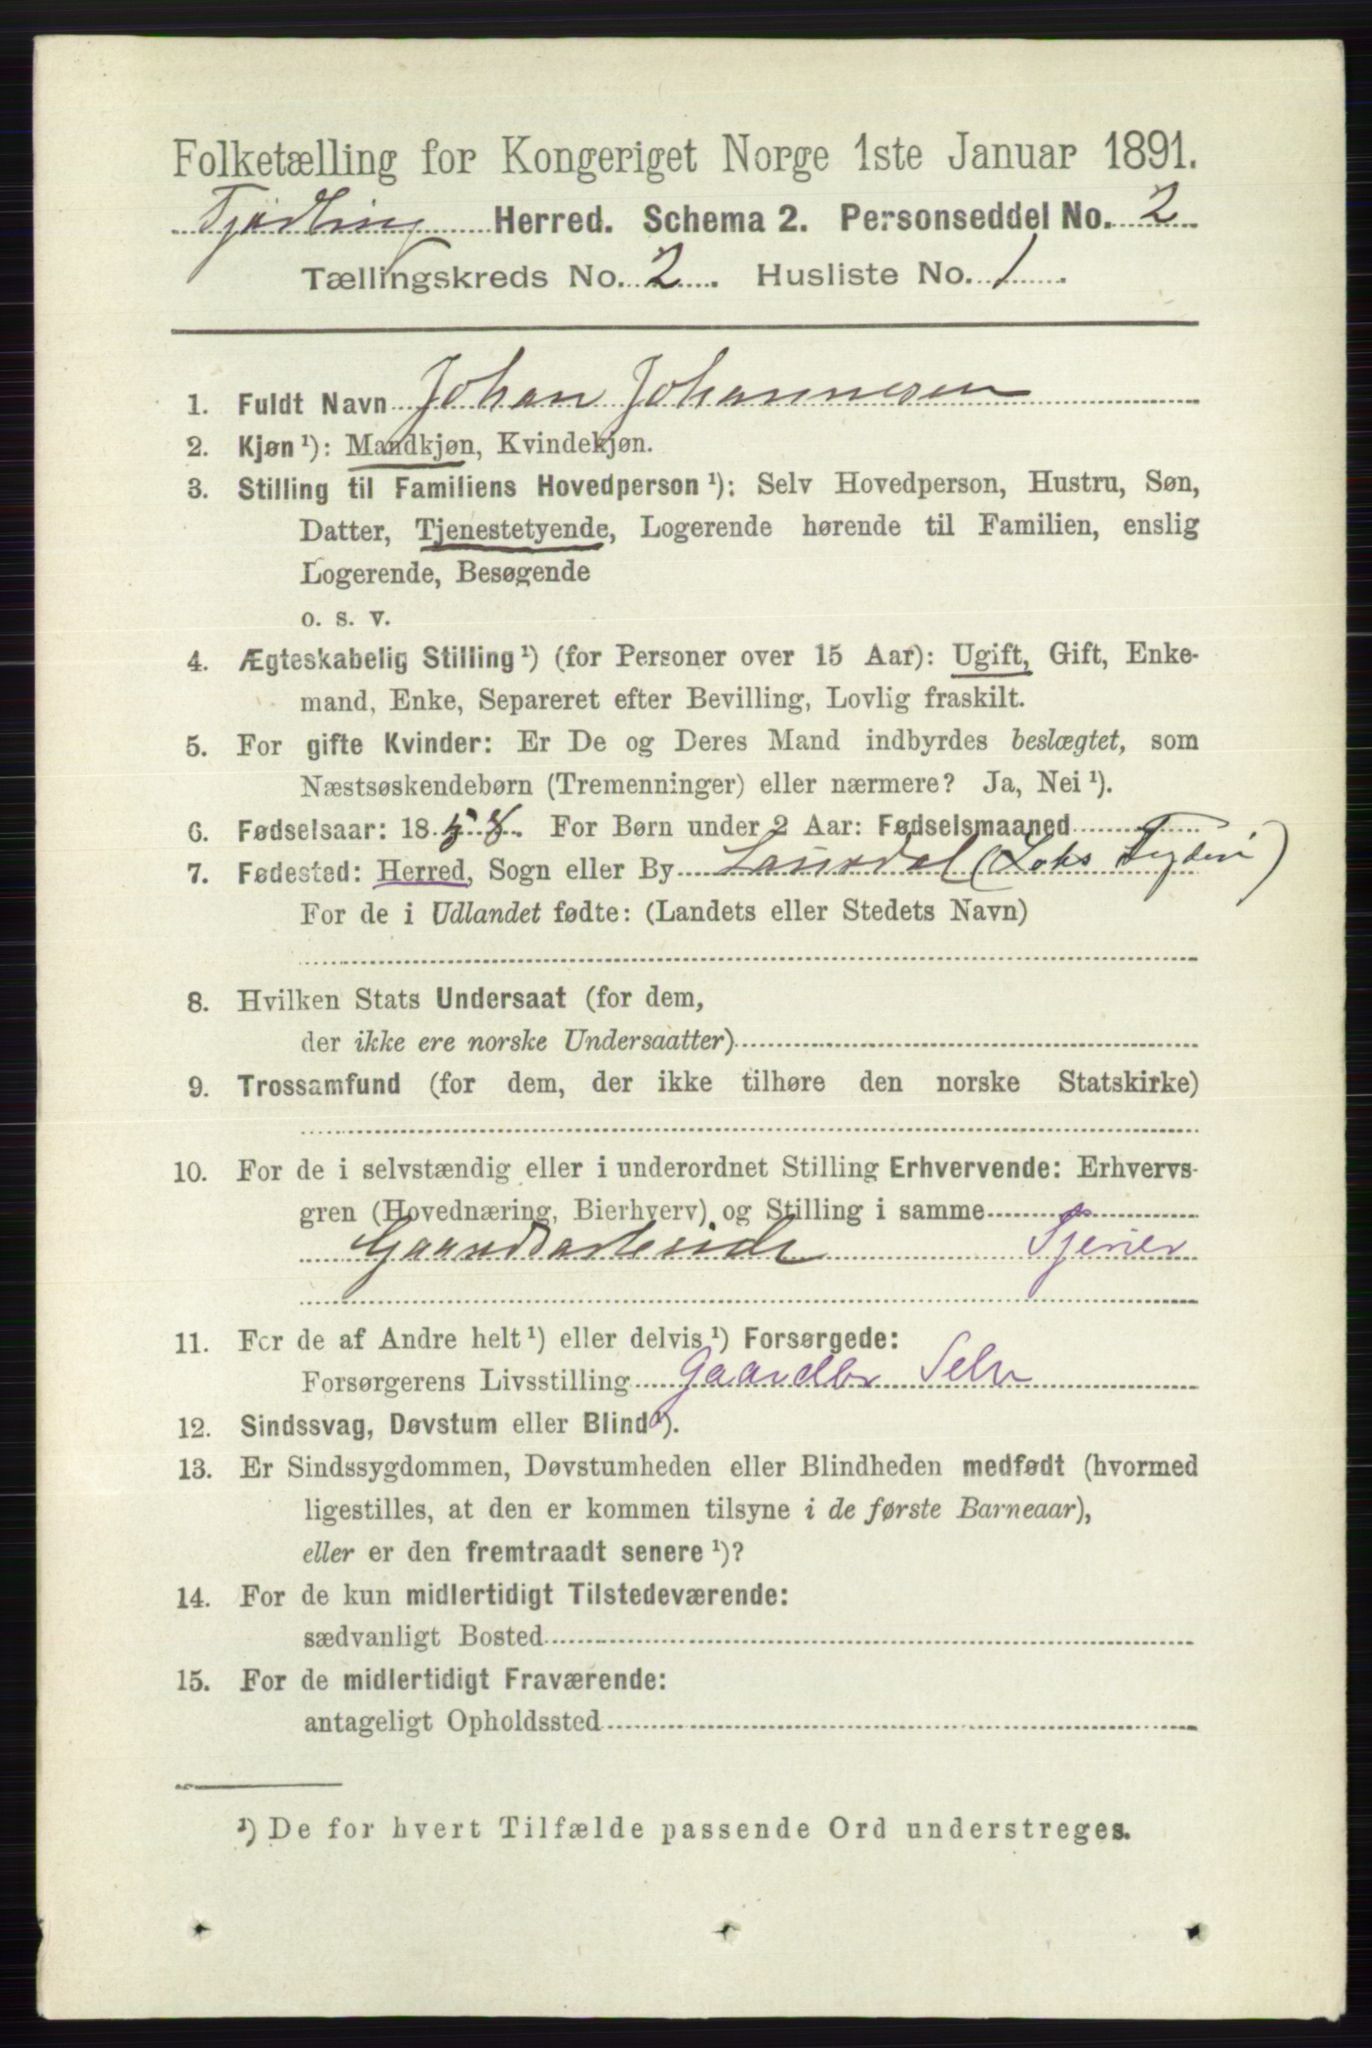 Folketælling for Kongeriget Norge 1ste Januar 1891.
Tjødling Herred. Schema 2. Personseddel No. 2
Tællingskreds No. 2. Husliste No. 1.
1. Fuldt Navn Johan Johannesen
2. Kjøn ¹): Mandkjøn, Kvindekjøn.
3. Stilling til Familiens Hovedperson ¹): Selv Hovedperson, Hustru, Søn,
Datter, Tjenestetyende, Logerende hørende til Familien, enslig
Logerende, Besøgende
o. s. v.
4. Ægteskabelig Stilling ¹) (for Personer over 15 Aar): Ugift, Gift, Enke-
mand, Enke, Separeret efter Bevilling, Lovlig fraskilt.
5. For gifte Kvinder: Er De og Deres Mand indbyrdes beslægtet, som
Næstsøskendebørn (Tremenninger) eller nærmere? Ja, Nei ¹).
6. Fødselsaar: 1858. For Børn under 2 Aar: Fødselsmaaned
7. Fødested: Herred, Sogn eller By
For de i Udlandet fødte: (Landets eller Stedets Navn)
8. Hvilken Stats Undersaat (for dem,
der ikke ere norske Undersaatter)
9. Trossamfund (for dem, der ikke tilhøre den norske Statskirke)
10. For de i selvstændig eller i underordnet Stilling Erhvervende: Erhvervs-
gren (Hovednæring, Bierhverv) og Stilling i samme
Gaardsarbeide Tjener
11. For de af Andre helt ¹) eller delvis ¹) Forsørgede:
Forsørgerens Livsstilling Gaardbr Selv
12. Sindssvag, Døvstum eller Blind ¹).
13. Er Sindssygdommen, Døvstumheden eller Blindheden medfødt (hvormed
ligestilles, at den er kommen tilsyne i de første Barneaar),
eller er den fremtraadt senere ¹)?
14. For de kun midlertidigt Tilstedeværende:
sædvanligt Bosted
15. For de midlertidigt Fraværende:
antageligt Opholdssted
¹) De for hvert Tilfælde passende Ord understreges.